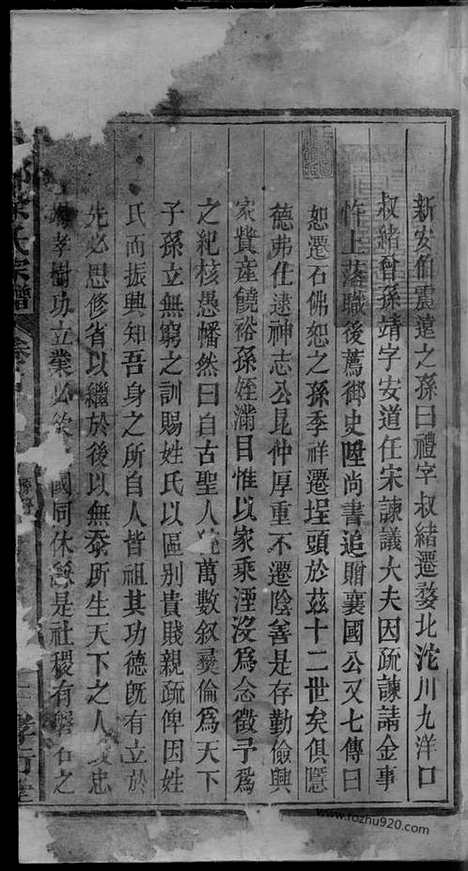 新安伯震遠之孫曰禮字叔緒遷婺北沱川九洋口
叔緒曾孫靖字安道任宋諫議大夫因疏諫請金事
忤上落職後薦御史陞尚書追贈襄國公又七傳曰
恕遷石佛恕之孫季祥遷埕頭於茲十二世矣俱隱
德弗仕遠神志公昆仲厚重不遷陰善是存勤儉興
家貲產饒裕孫姪滿目惟以家乘湮沒為念徵予為
之紀核愚幡然曰自古聖人 萬數叙彝倫為天下
子孫立無窮之訓賜姓氏以區別貴賤親疏俾因姓
氏而振興知吾身之所自人皆祖其功德既有立於
先必思修省以繼於後以無忝所生天下之人 忠
孝樹功立業必欲 國同休 是社稷有磐石之
氏宗譜 卷
www.fozhu920.com